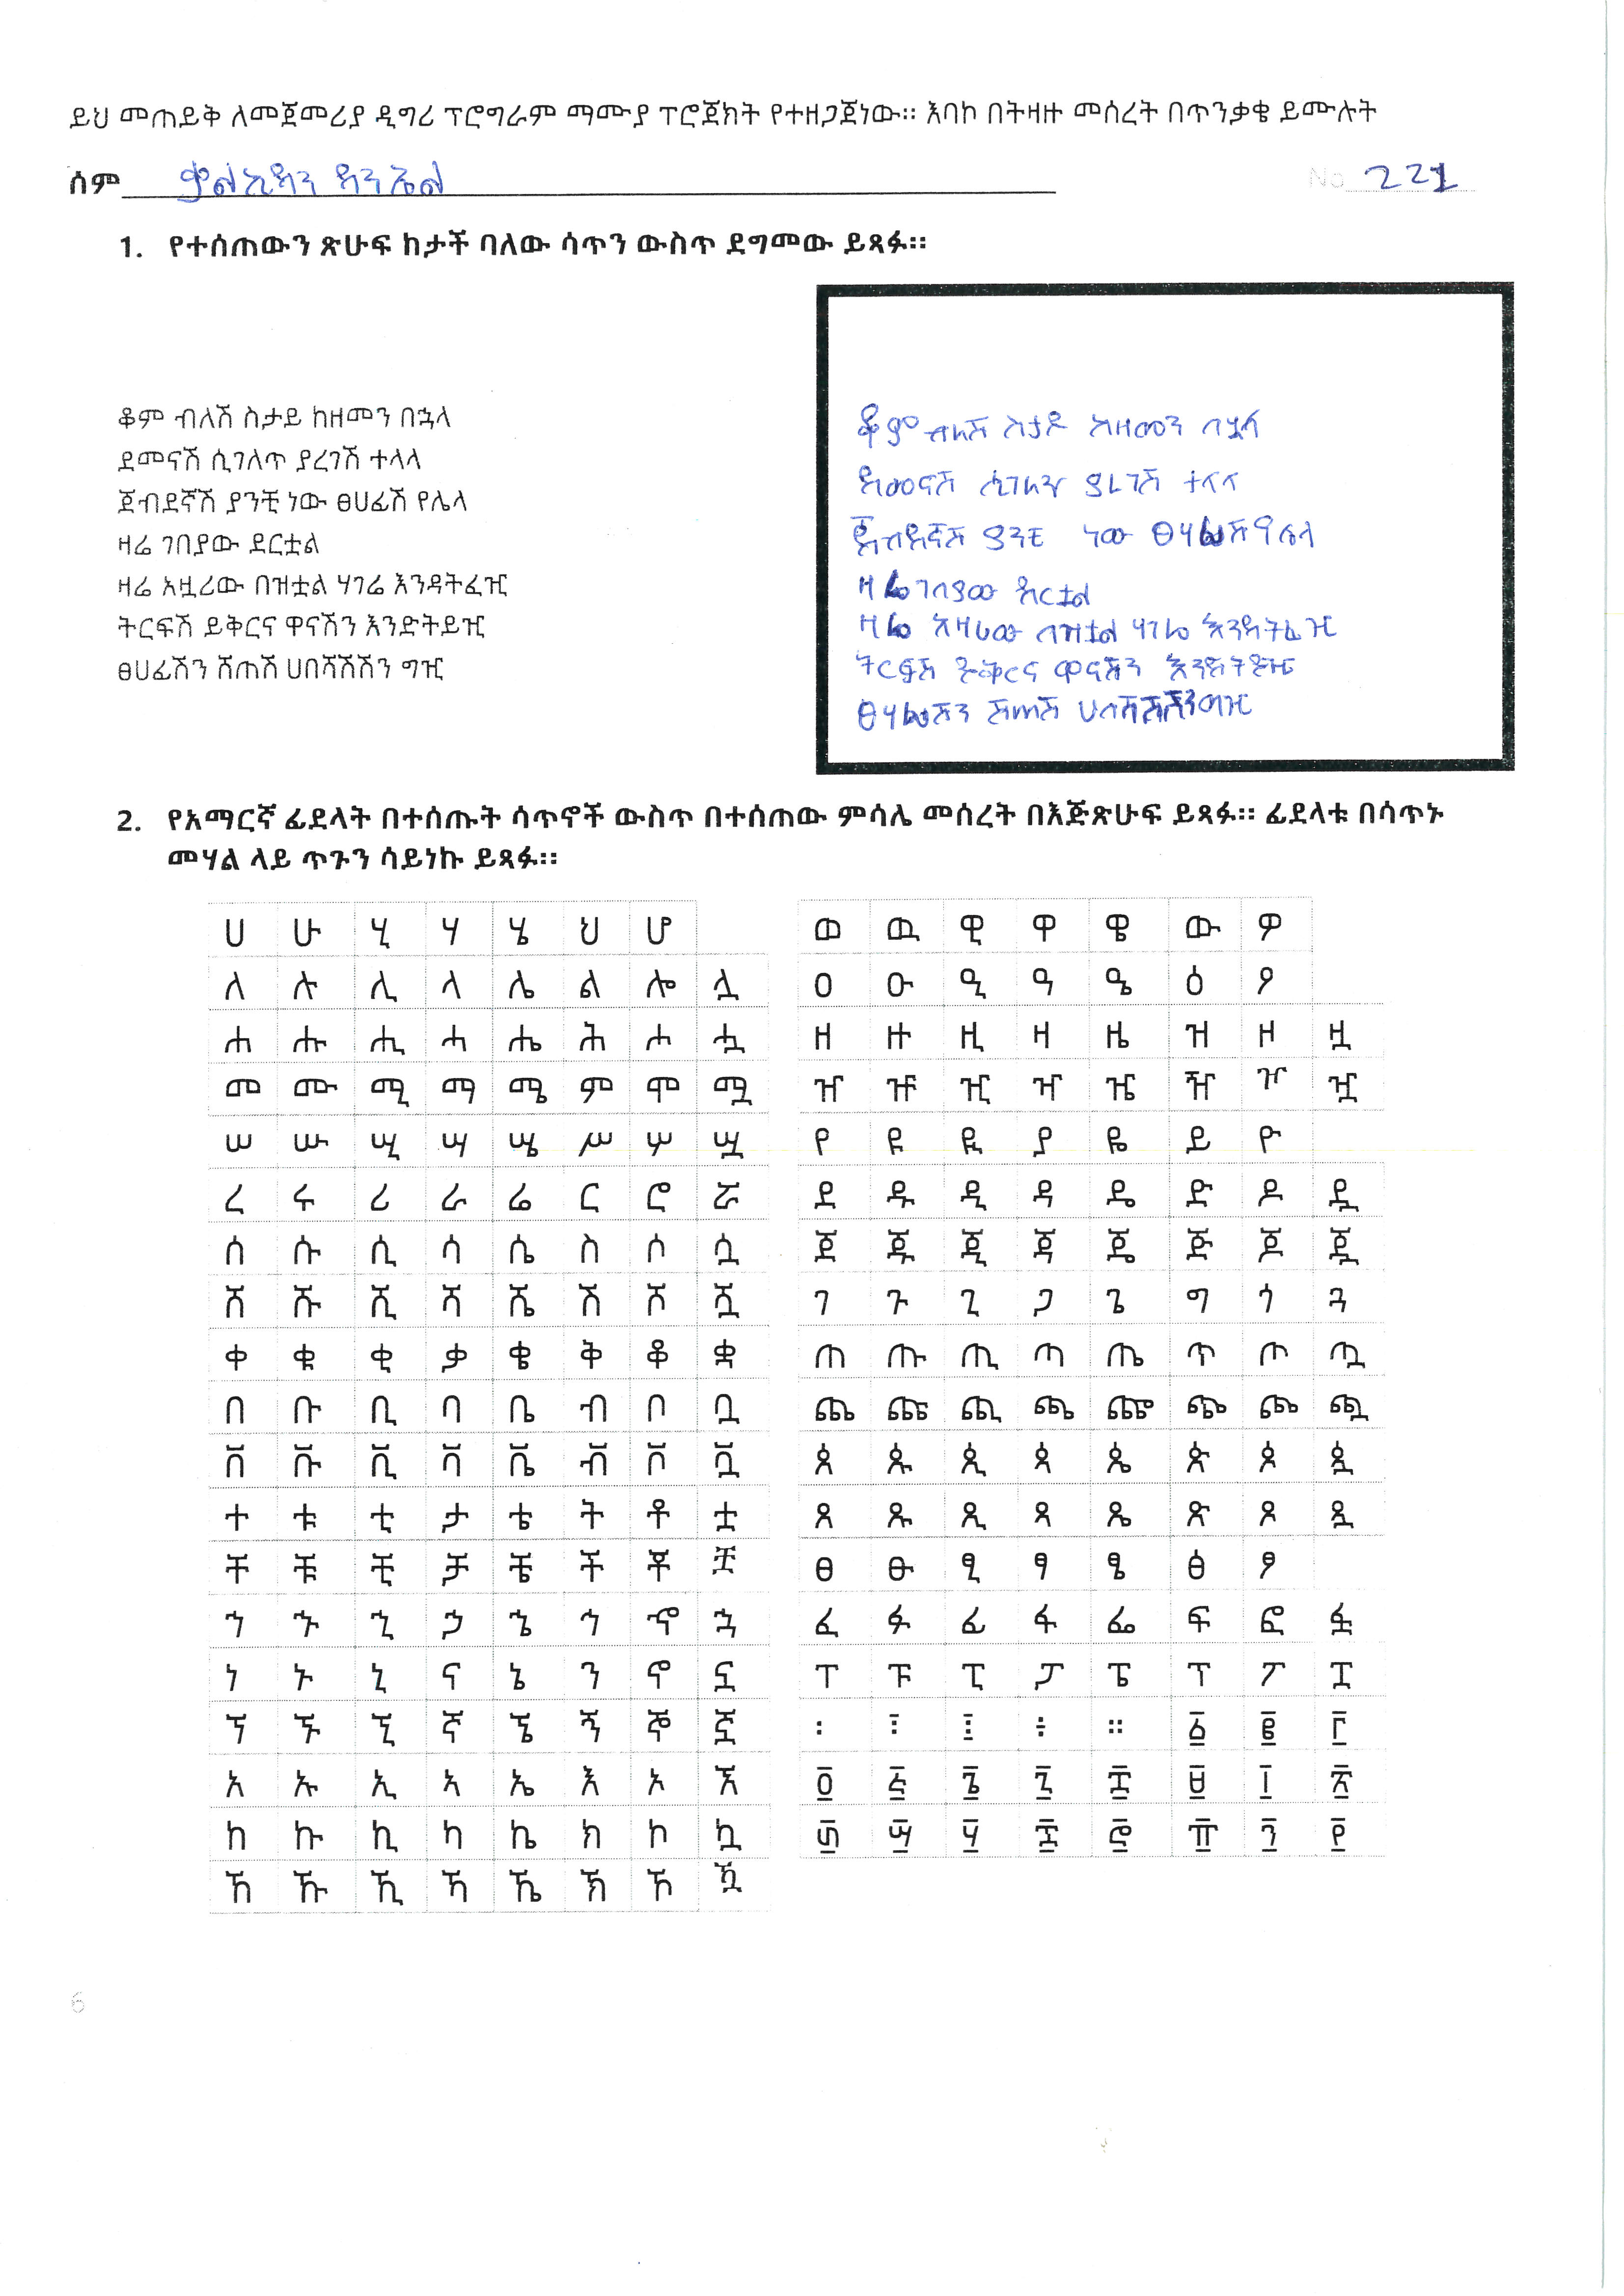 ይህ መጠይቅ ለመጀመሪያ ዲግሪ ፕሮግራም ማሙያ ፕሮጀክት የተዘጋጀነው። እባኮ በትዛዙ መሰረት በጥንቃቄ ይሙሉት
ሰም ቃልኪዳን ዳንኤል No 221
1. የተሰጠውን ጽሁፍ ከታች ባለው ሳጥን ውስጥ ደግመው ይጻፉ።
ቆም ብለሽ ስታይ ከዘመን በኋላ
ደመናሽ ሲገለጥ ያረገሽ ተላላ
ጀብደኛሽ ያንቺ ነው ፀሀፊሽ የሌላ
ዛሬ ገበያው ደርቷል
ዛሬ አዟሪው በዝቷል ሃገሬ እንዳትፈዢ
ትርፍሽ ይቅርና ዋናሽን እንድትይዢ
ፀሀፊሽን ሸጠሽ ሀበሻሽሽን ግዢ
ቆም ብለሽ ስታይ ከዘመን በኋላ
ደመናሽ ሲገለጥ ያረገሽ ተላላ
ጀብደኛሽ ያንቺ ነው ፀሃፊሽ የሌላ
ዛሬ ገበያው ደርቷል
ዛሬ አዛሪው በዝቷል ሃገሬ እንዳትፈዢ
ትርፍሽ ይቅርና ዋናሽን እንድትይዢ
ፀሃፊሽን ሸጠሽ ሀበሻሽሽን ግዢ
2. የአማርኛ ፊደላት በተሰጡት ሳጥኖች ውስጥ በተሰጠው ምሳሌ መሰረት በእጅጽሁፍ ይጻፉ። ፊደላቱ በሳጥኑ
መሃል ላይ ጥጉን ሳይነኩ ይጻፉ።
ሀ ሁ ሂ ሃ ሄ ህ ሆ
ለ ሉ ሊ ላ ሌ ል ሎ ሏ
ሐ ሑ ሒ ሓ ሔ ሕ ሖ ሗ
መ ሙ ሚ ማ ሜ ም ሞ ሟ
ሠ ሡ ሢ ሣ ሤ ሥ ሦ ሧ
ረ ሩ ሪ ራ ሬ ር ሮ ሯ
ሰ ሱ ሲ ሳ ሴ ስ ሶ ሷ
ሸ ሹ ሺ ሻ ሼ ሽ ሾ ሿ
ቀ ቁ ቂ ቃ ቄ ቅ ቆ ቋ
በ ቡ ቢ ባ ቤ ብ ቦ ቧ
ቨ ቩ ቪ ቫ ቬ ቭ ቮ ቯ
ተ ቱ ቲ ታ ቴ ት ቶ ቷ
ቸ ቹ ቺ ቻ ቼ ች ቾ ቿ
ኀ ኁ ኂ ኃ ኄ ኅ ኆ ኋ
ነ ኑ ኒ ና ኔ ን ኖ ኗ
ኘ ኙ ኚ ኛ ኜ ኝ ኞ ኟ
አ ኡ ኢ ኣ ኤ እ ኦ ኧ
ከ ኩ ኪ ካ ኬ ክ ኮ ኳ
ኸ ኹ ኺ ኻ ኼ ኽ ኾ ዃ
ወ ዉ ዊ ዋ ዌ ው ዎ
ዐ ዑ ዒ ዓ ዔ ዕ ዖ
ዘ ዙ ዚ ዛ ዜ ዝ ዞ ዟ
ዠ ዡ ዢ ዣ ዤ ዥ ዦ ዧ
የ ዩ ዪ ያ ዬ ይ ዮ
ደ ዱ ዲ ዳ ዴ ድ ዶ ዷ
ጀ ጁ ጂ ጃ ጄ ጅ ጆ ጇ
ገ ጉ ጊ ጋ ጌ ግ ጎ ጓ
ጠ ጡ ጢ ጣ ጤ ጥ ጦ ጧ
ጨ ጩ ጪ ጫ ጬ ጭ ጮ ጯ
ጰ ጱ ጲ ጳ ጴ ጵ ጶ ጷ
ጸ ጹ ጺ ጻ ጼ ጽ ጾ ጿ
ፀ ፁ ፂ ፃ ፄ ፅ ፆ
ፈ ፉ ፊ ፋ ፌ ፍ ፎ ፏ
ፐ ፑ ፒ ፓ ፔ ፕ ፖ ፗ
፡ ፤ ፧ ፥ ። ፩ ፪ ፫
፬ ፭ ፮ ፯ ፰ ፱ ፲ ፳
፴ ፵ ፶ ፷ ፸ ፹ ፺ ፻
6